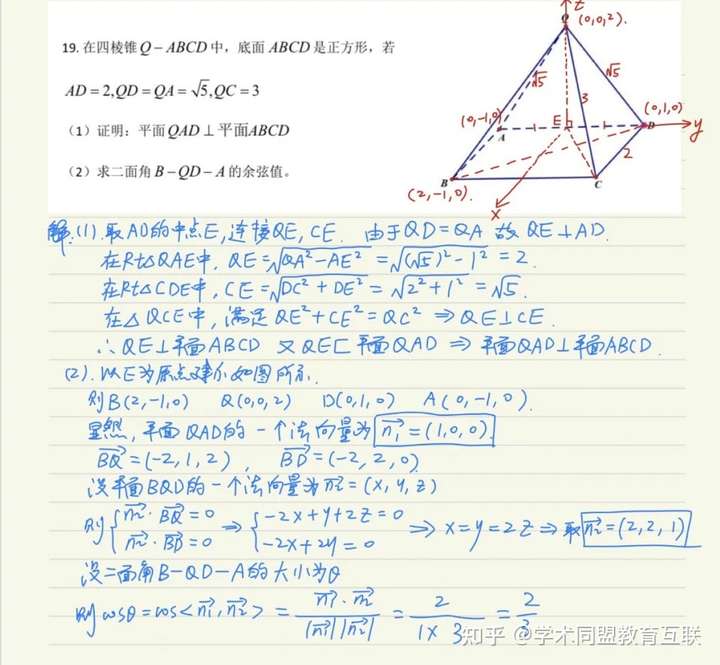 19. 在四棱锥 Q－ABCD 中，底面 ABCD 是正方形，若
AD = 2, QD = QA = √5, QC = 3
（1）证明：平面 QAD ⊥ 平面 ABCD
（2）求二面角 B－QD－A 的余弦值。
z
Q (0,0,2).
√5 √5
3
(0,-1,0) E (0,1,0)
A 1 1 D y
2
B C
(2,-1,0). x
解:(1).取AD的中点E,连接QE,CE. 由于QD=QA 故 QE⊥AD.
在Rt△QAE中, QE=√(QA²-AE²) = √((√5)²-1²) = 2.
在Rt△CDE中, CE=√(DC²+DE²) = √(2²+1²) = √5.
在△QCE中, 满足 QE²+CE²=QC² ⇒ QE⊥CE.
∴ QE⊥平面ABCD 又QE⊂平面QAD ⇒ 平面QAD⊥平面ABCD.
(2). 以E为原点建系如图所示.
则B(2,-1,0) Q(0,0,2) D(0,1,0) A(0,-1,0).
显然, 平面QAD的一个法向量为 n₁=(1,0,0)
BQ=(-2,1,2), BD=(-2,2,0)
设平面BQD的一个法向量为n₂=(x,y,z)
则 { n₂·BQ=0 ⇒ { -2x+y+2z=0 ⇒ x=y=2z ⇒ 取 n₂=(2,2,1)
n₂·BD=0 -2x+2y=0
设二面角B-QD-A的大小为θ
则cosθ=cos<n₁,n₂> = n₁·n₂ / |n₁||n₂| = 2 / 1×3 = 2/3
知乎 @学术同盟教育互联